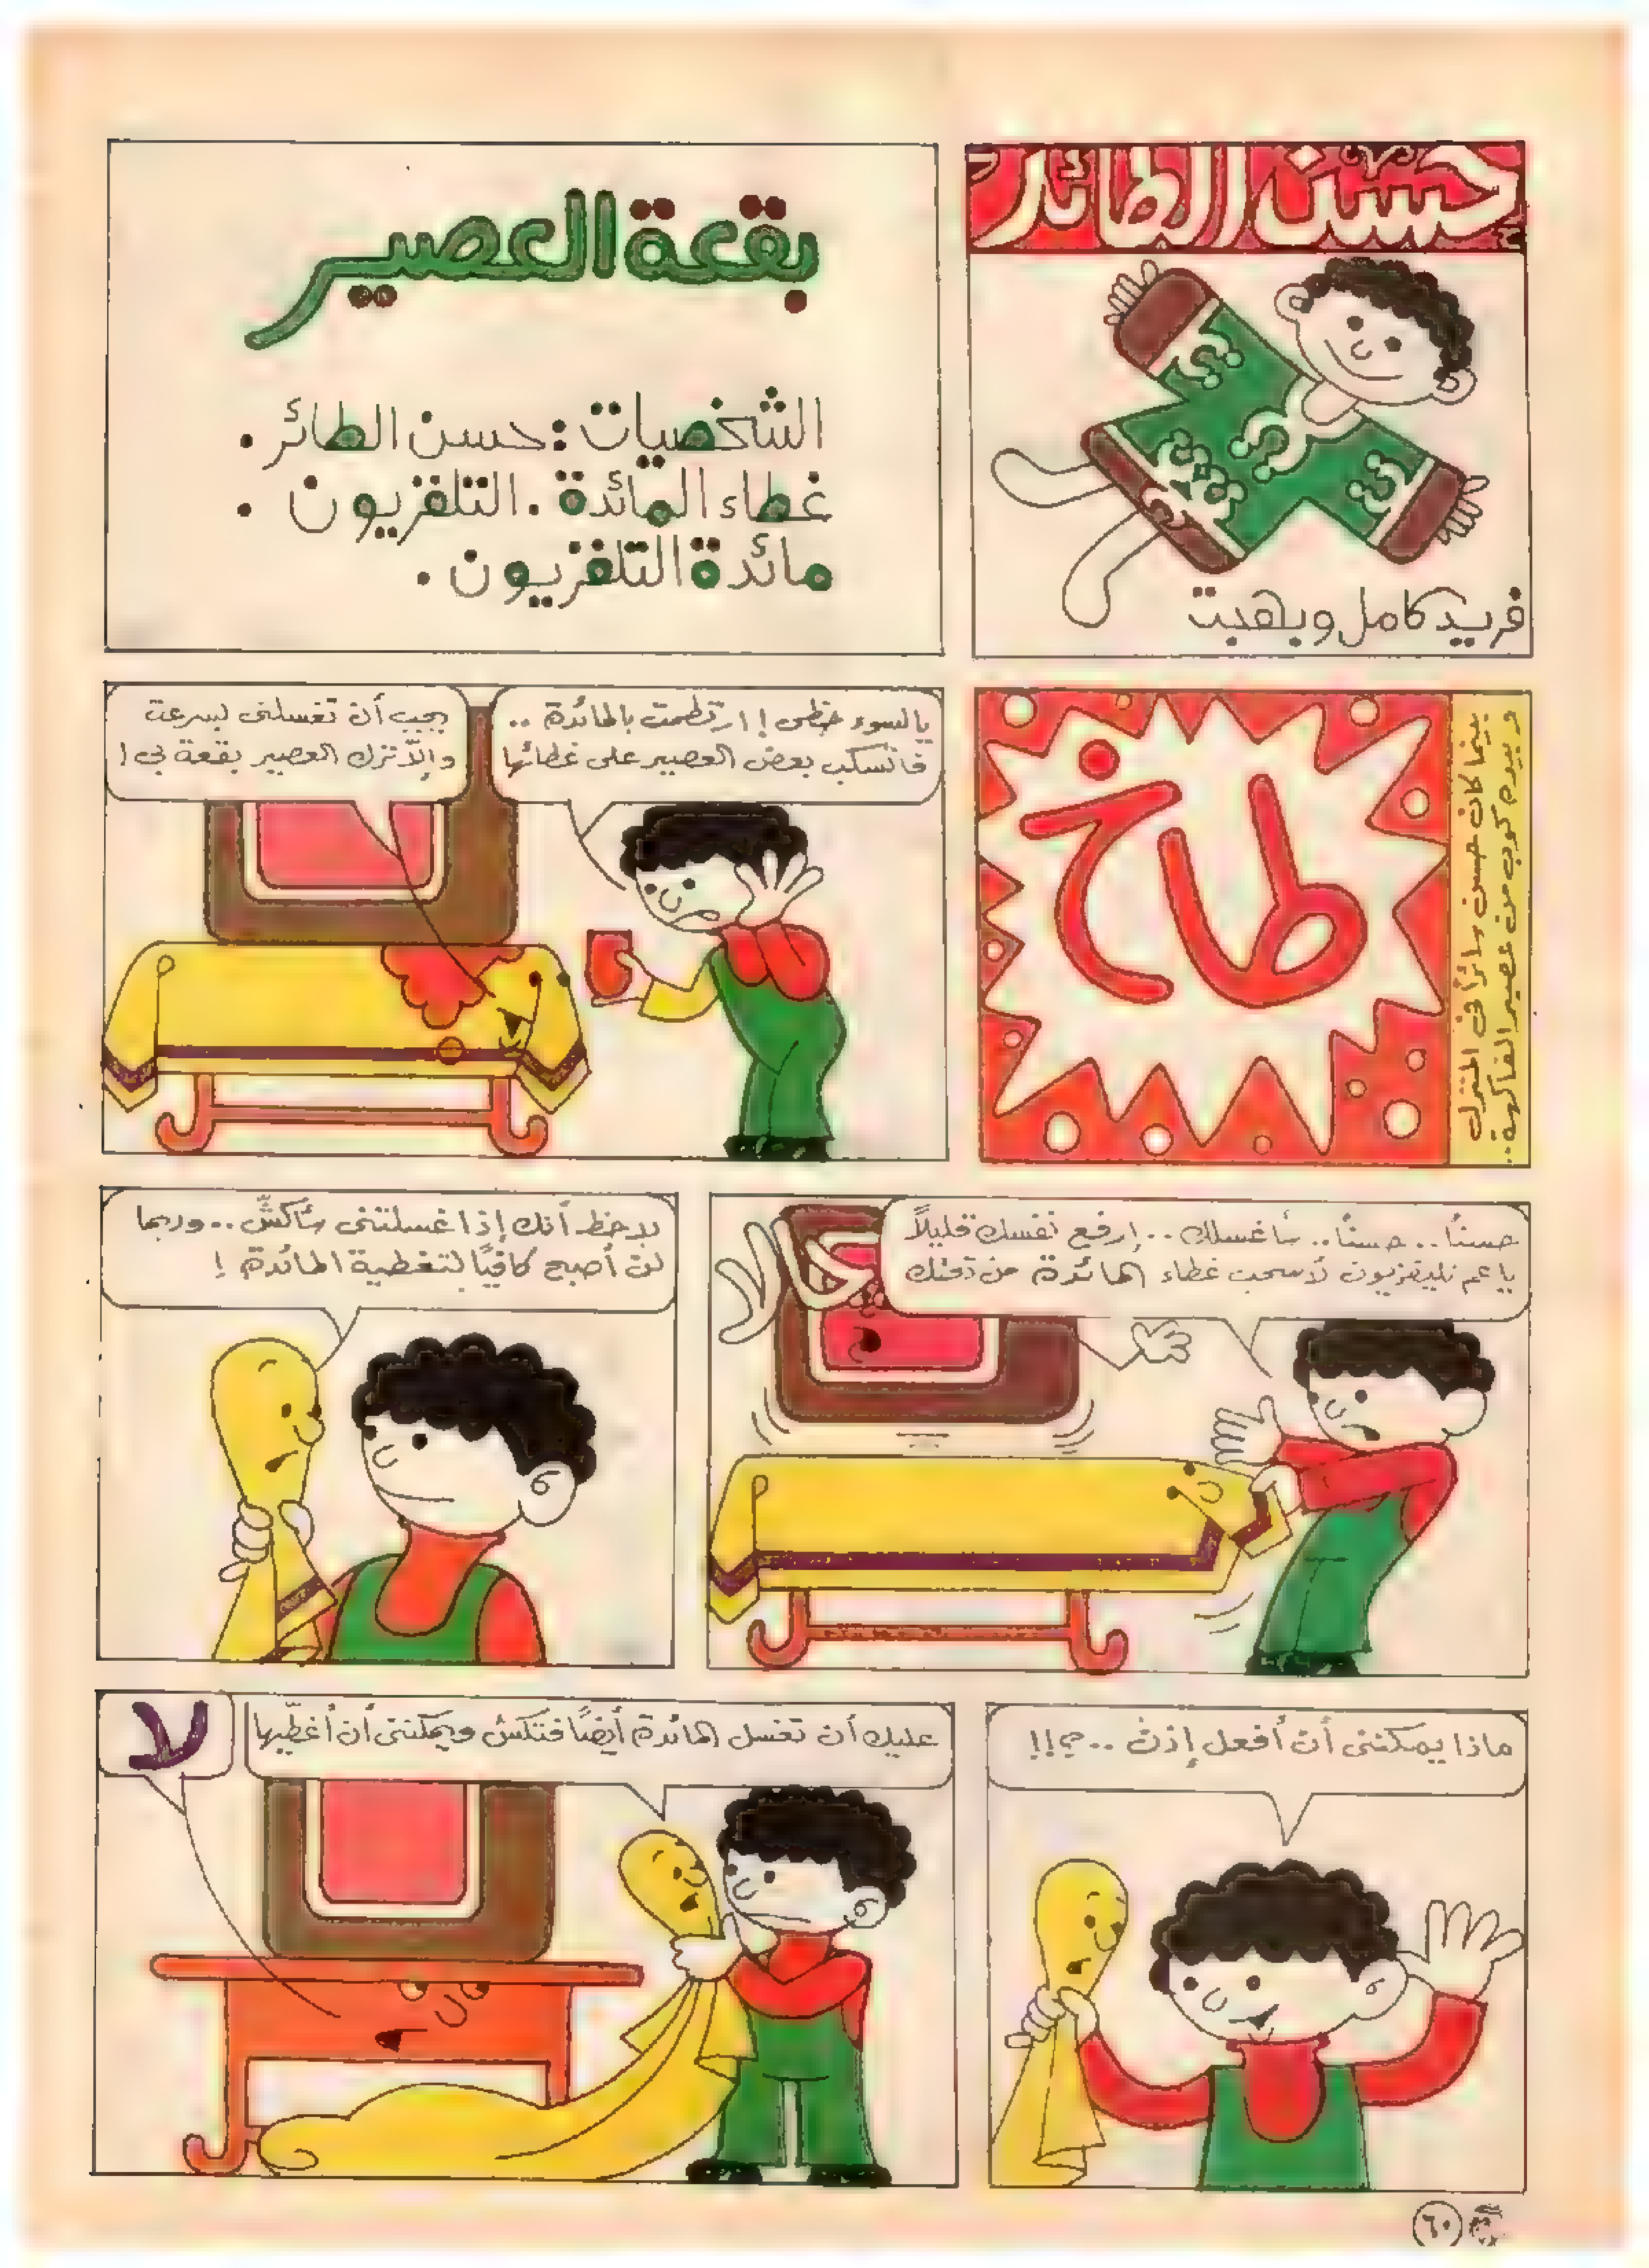 حسن الطائر
فريد كامل وبهجت
بقعة العصير
الشخصيات : حسن الطائر .
غطاء المائدة . التلفزيون .
مائدة التلفزيون .
بينما كان حسن سائراً فى المنزل
وبيده كوب من عصير الفاكهة ..
طاخ
يا لسوء حظى ! ارتطمت بالمائدة ..
فانسكب بعض العصير على غطائها
يجب أن تغسلنى بسرعة
وإلّا ترك العصير بقعة بى !
حسناً .. حسناً .. سأغسلك .. إرفع نفسك قليلاً
يا عم تليفزيون لأسحب غطاء المائدة من تحتك
حالا
لاحظ أنك إذا غسلتنى سأكشّ .. وربما
لن أصبح كافيًا لتغطية المائدة !
ماذا يمكننى أن أفعل إذن .. ؟!!
عليك أن تغسل المائدة أيضاً فتكش ويمكننى أن أغطّيها
لا
٦٠